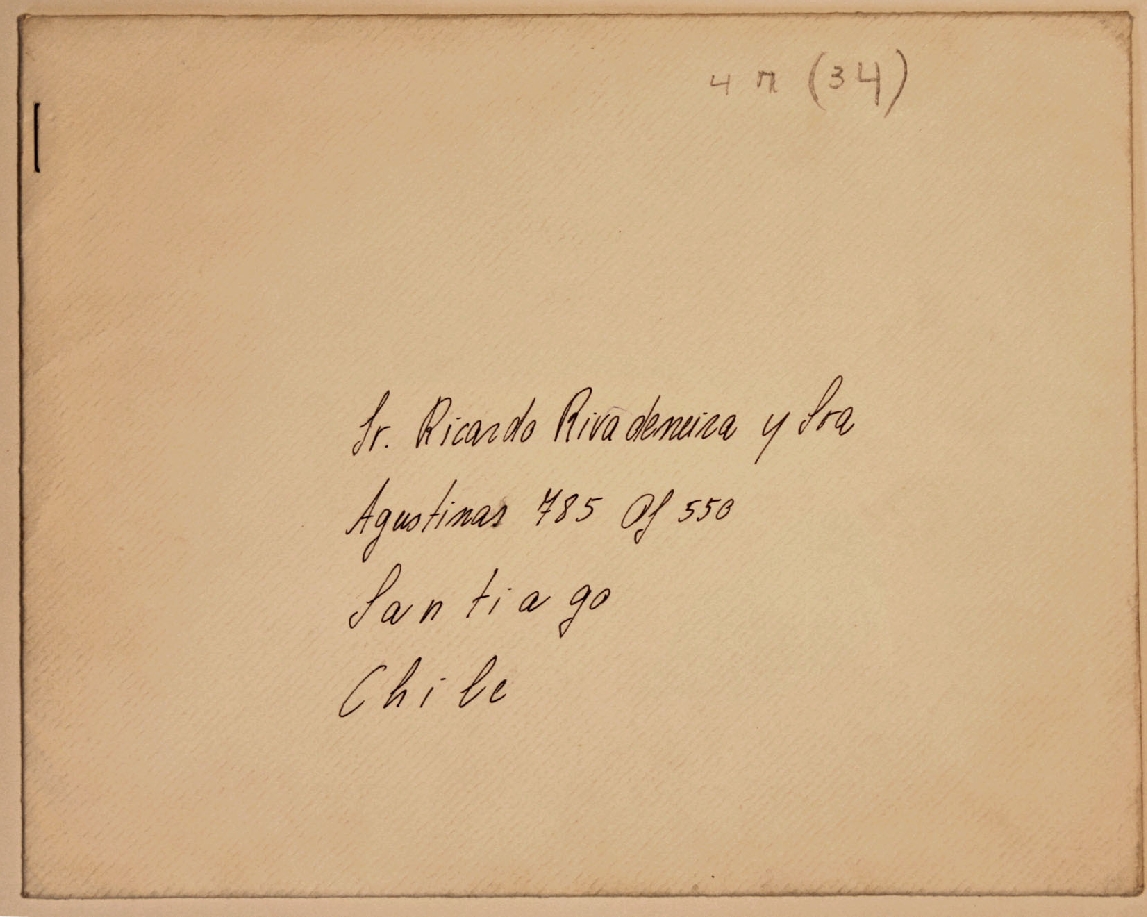 4 n (34)
Sr. Ricardo Rivadeneira y Sra
Agustinas 785 Of 550
Santiago
Chile